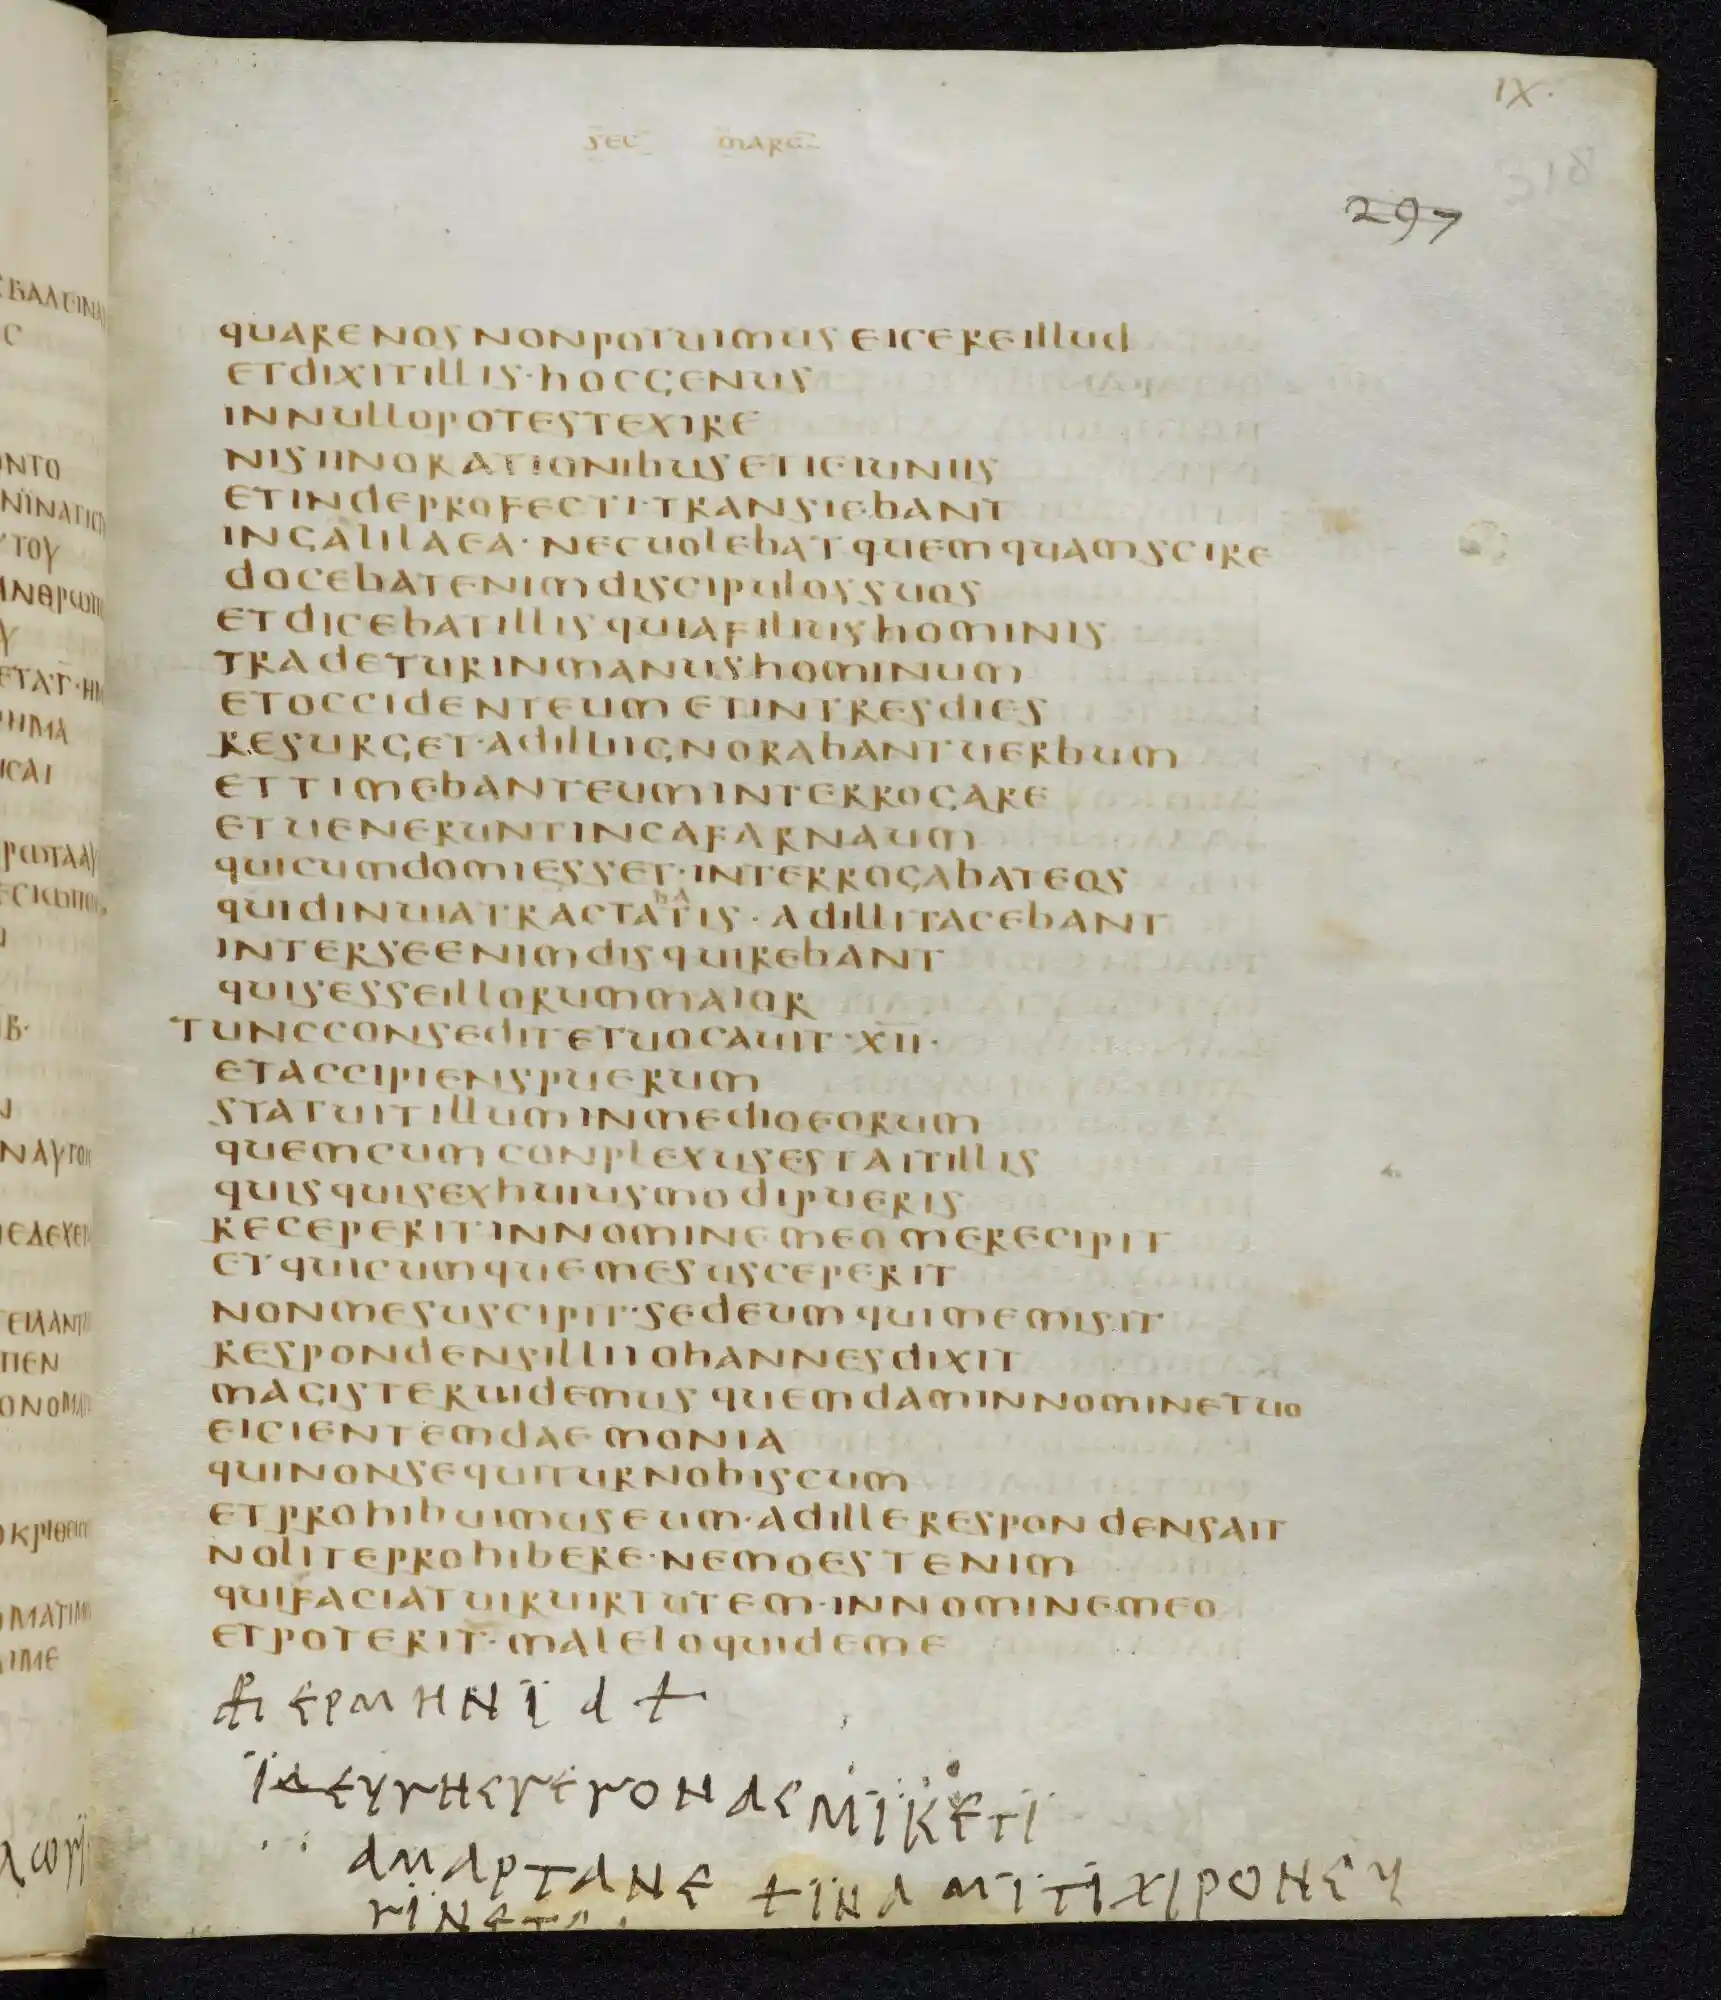 IX·
SEC MARC
318
297
QUARENOSNONPOTUIMUSEICEREILLUD
ETDIXITILLIS·HOCGENUS
INNULLOPOTESTEXIRE
NISIINORATIONIBUSETIEIUNIIS
ETINDEPROFECTI·TRANSIEBANT
INGALILAEA·NECUOLEBATQUEMQUAMSCIRE
DOCEBATENIMDISCIPULOSSUOS
ETDICEBATILLISQUIAFILIUSHOMINIS
TRADETURINMANUSHOMINUM
ETOCCIDENTEUMETINTRESDIES
RESURGET·ADILLIIGNORABANTUERBUM
ETTIMEBANTEUMINTERROGARE
ETUENERUNTINCAFARNAUM
QUICUMDOMIESSET·INTERROGABATEOS
QUIDINUIATRACTABATIS·ADILLITACEBANT
INTERSEENIMDISQUIREBANT
QUISESSEILLORUMMAIOR
TUNCCONSEDITETUOCAUIT·XII·
ETACCIPIENSPUERUM
STATUITILLUMINMEDIOEORUM
QUEMCUMCONPLEXUSESTAITILLIS
QUISQUISEXHUIUSMODIPUERIS
RECEPERIT·INNOMINEMEOMERECIPIT
ETQUICUMQUEMESUSCEPERIT
NONMESUSCIPIT·SEDEUMQUIMEMISIT
RESPONDENSILLIIOHANNESDIXIT
MAGISTERUIDEMUSQUEMDAMINNOMINETUO
EICIENTEMDAEMONIA
QUINONSEQUITURNOBISCUM
ETPROHIBUIMUSEUM·ADILLERESPONDENSAIT
NOLITEPROHIBERE·NEMOESTENIM
QUIFACIATUIRUIRTUTEM·INNOMINEMEO
ETPOTERIT·MALELOQUIDEME
ΕΡΜΗΝΪΑ +
ΪΔΕΥΓΗΕΣΓΕΓΟΝΑΣΜΪΚΕΤΪ
ΑΜΑΡΤΑΝΕ +ΪΝΑΜΪΤΪΧΙΡΟΝΣΥ
ΓΪΝΕΤΕ